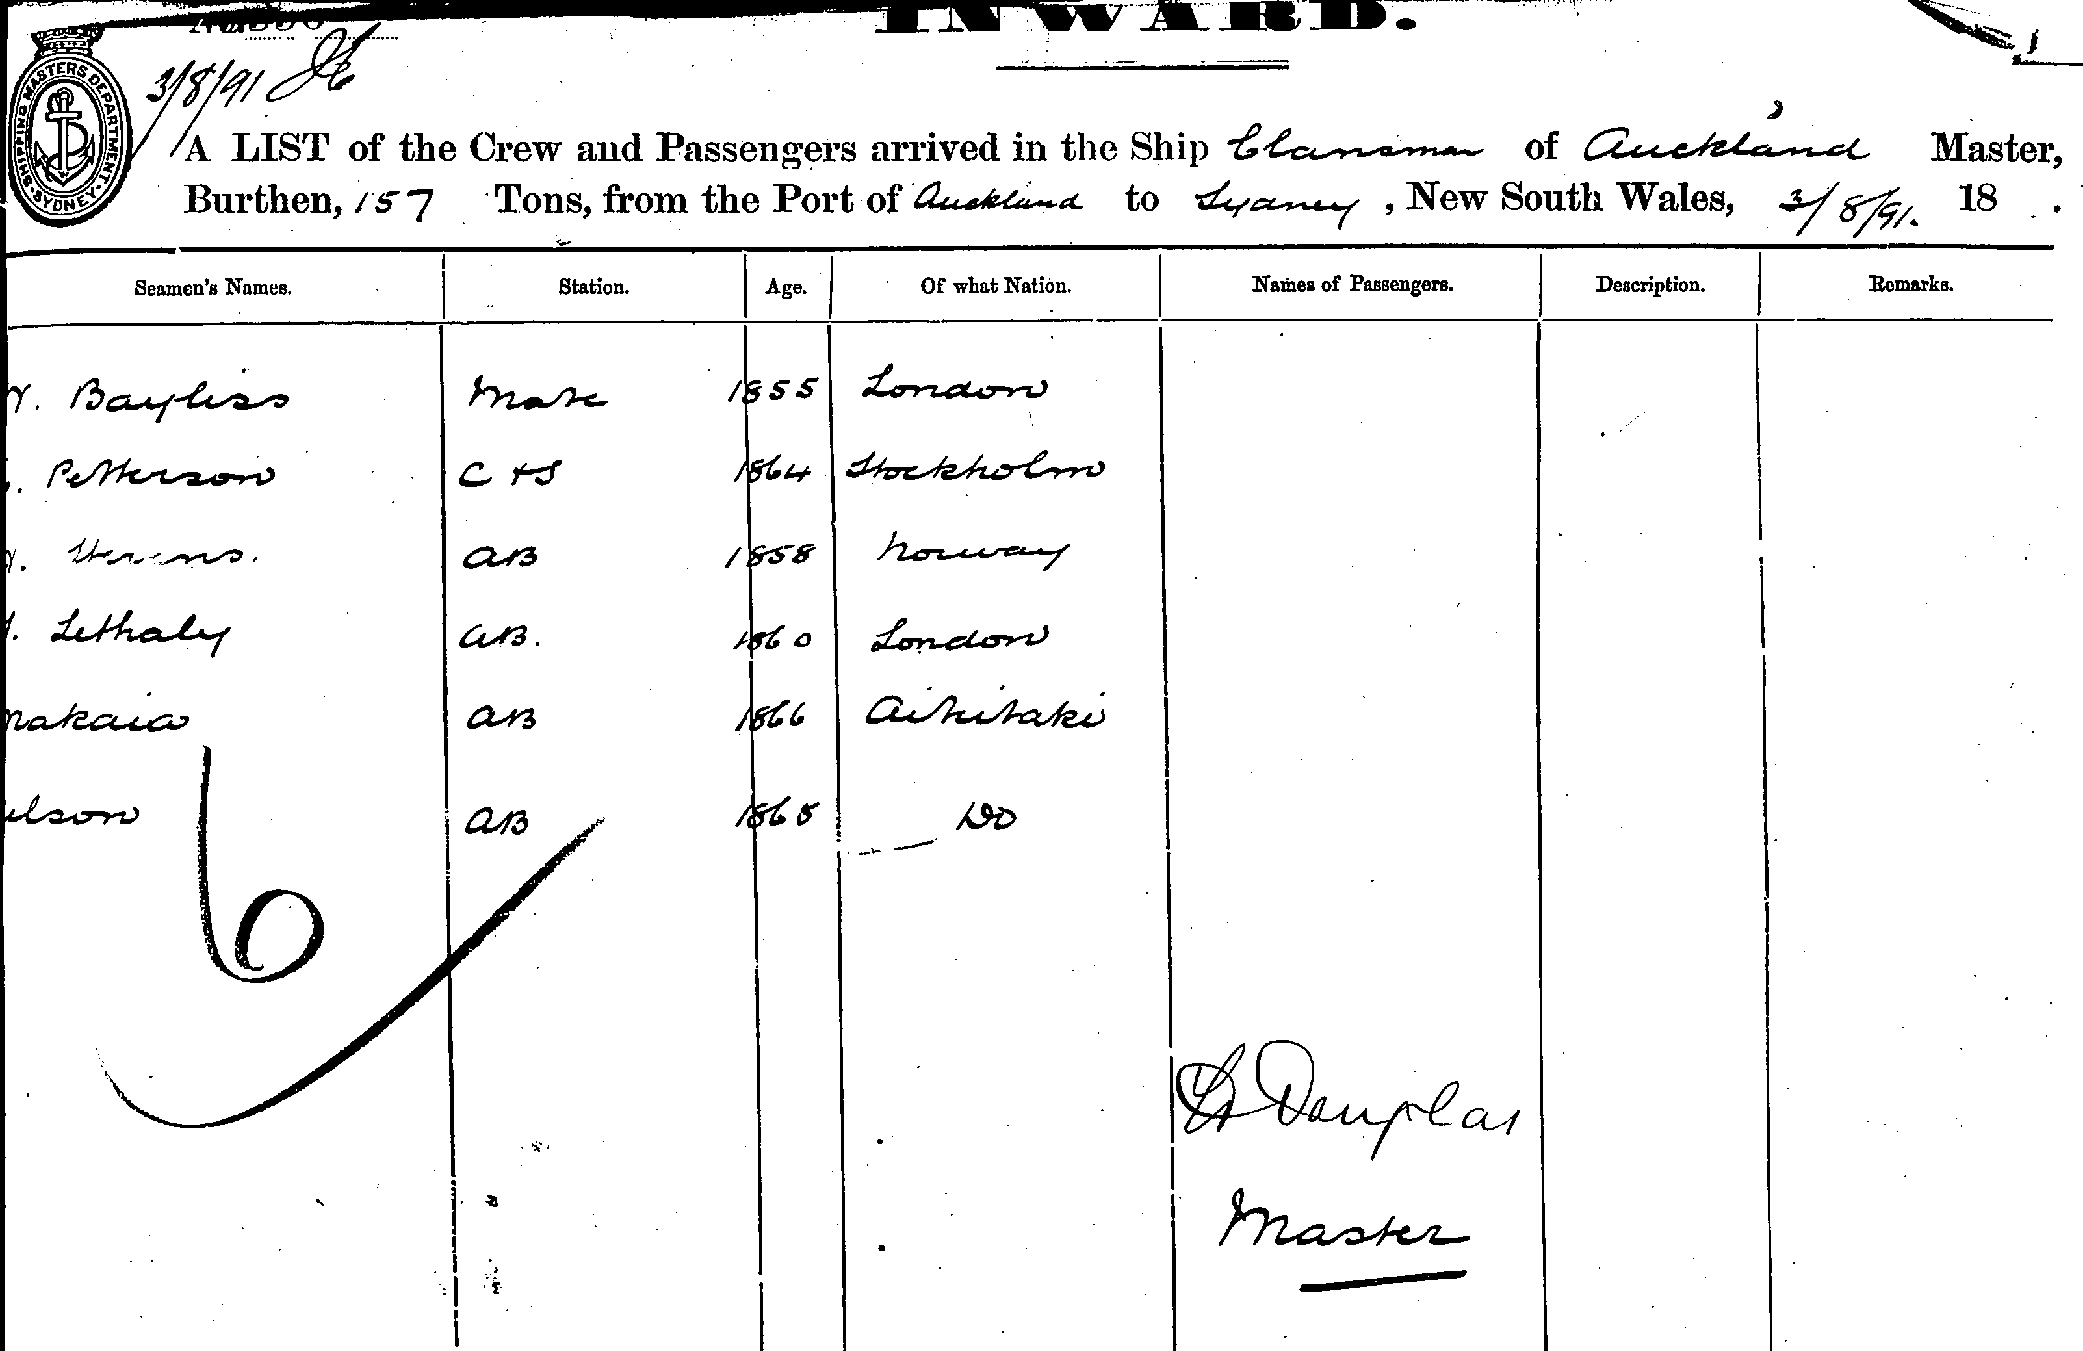 INWARD.
SHIPPING MASTERS DEPARTMENT. SYDNEY.
3/8/91
A LIST of the Crew and Passengers arrived in the Ship Clansman of Auckland Master,
Burthen, 157 Tons, from the Port of Auckland to Sydney, New South Wales, 3/8/91. 18 .
Seamen's Names. Station. Age. Of what Nation. Names of Passengers. Description. Remarks.
Bayliss Mate 1855 London
Petterson C & S 1864 Stockholm
AB 1858 Norway
Lethaly AB. 1860 London
makaia AB 1866 Aitutaki
elson AB 1868 Do
6
Douglas
Master